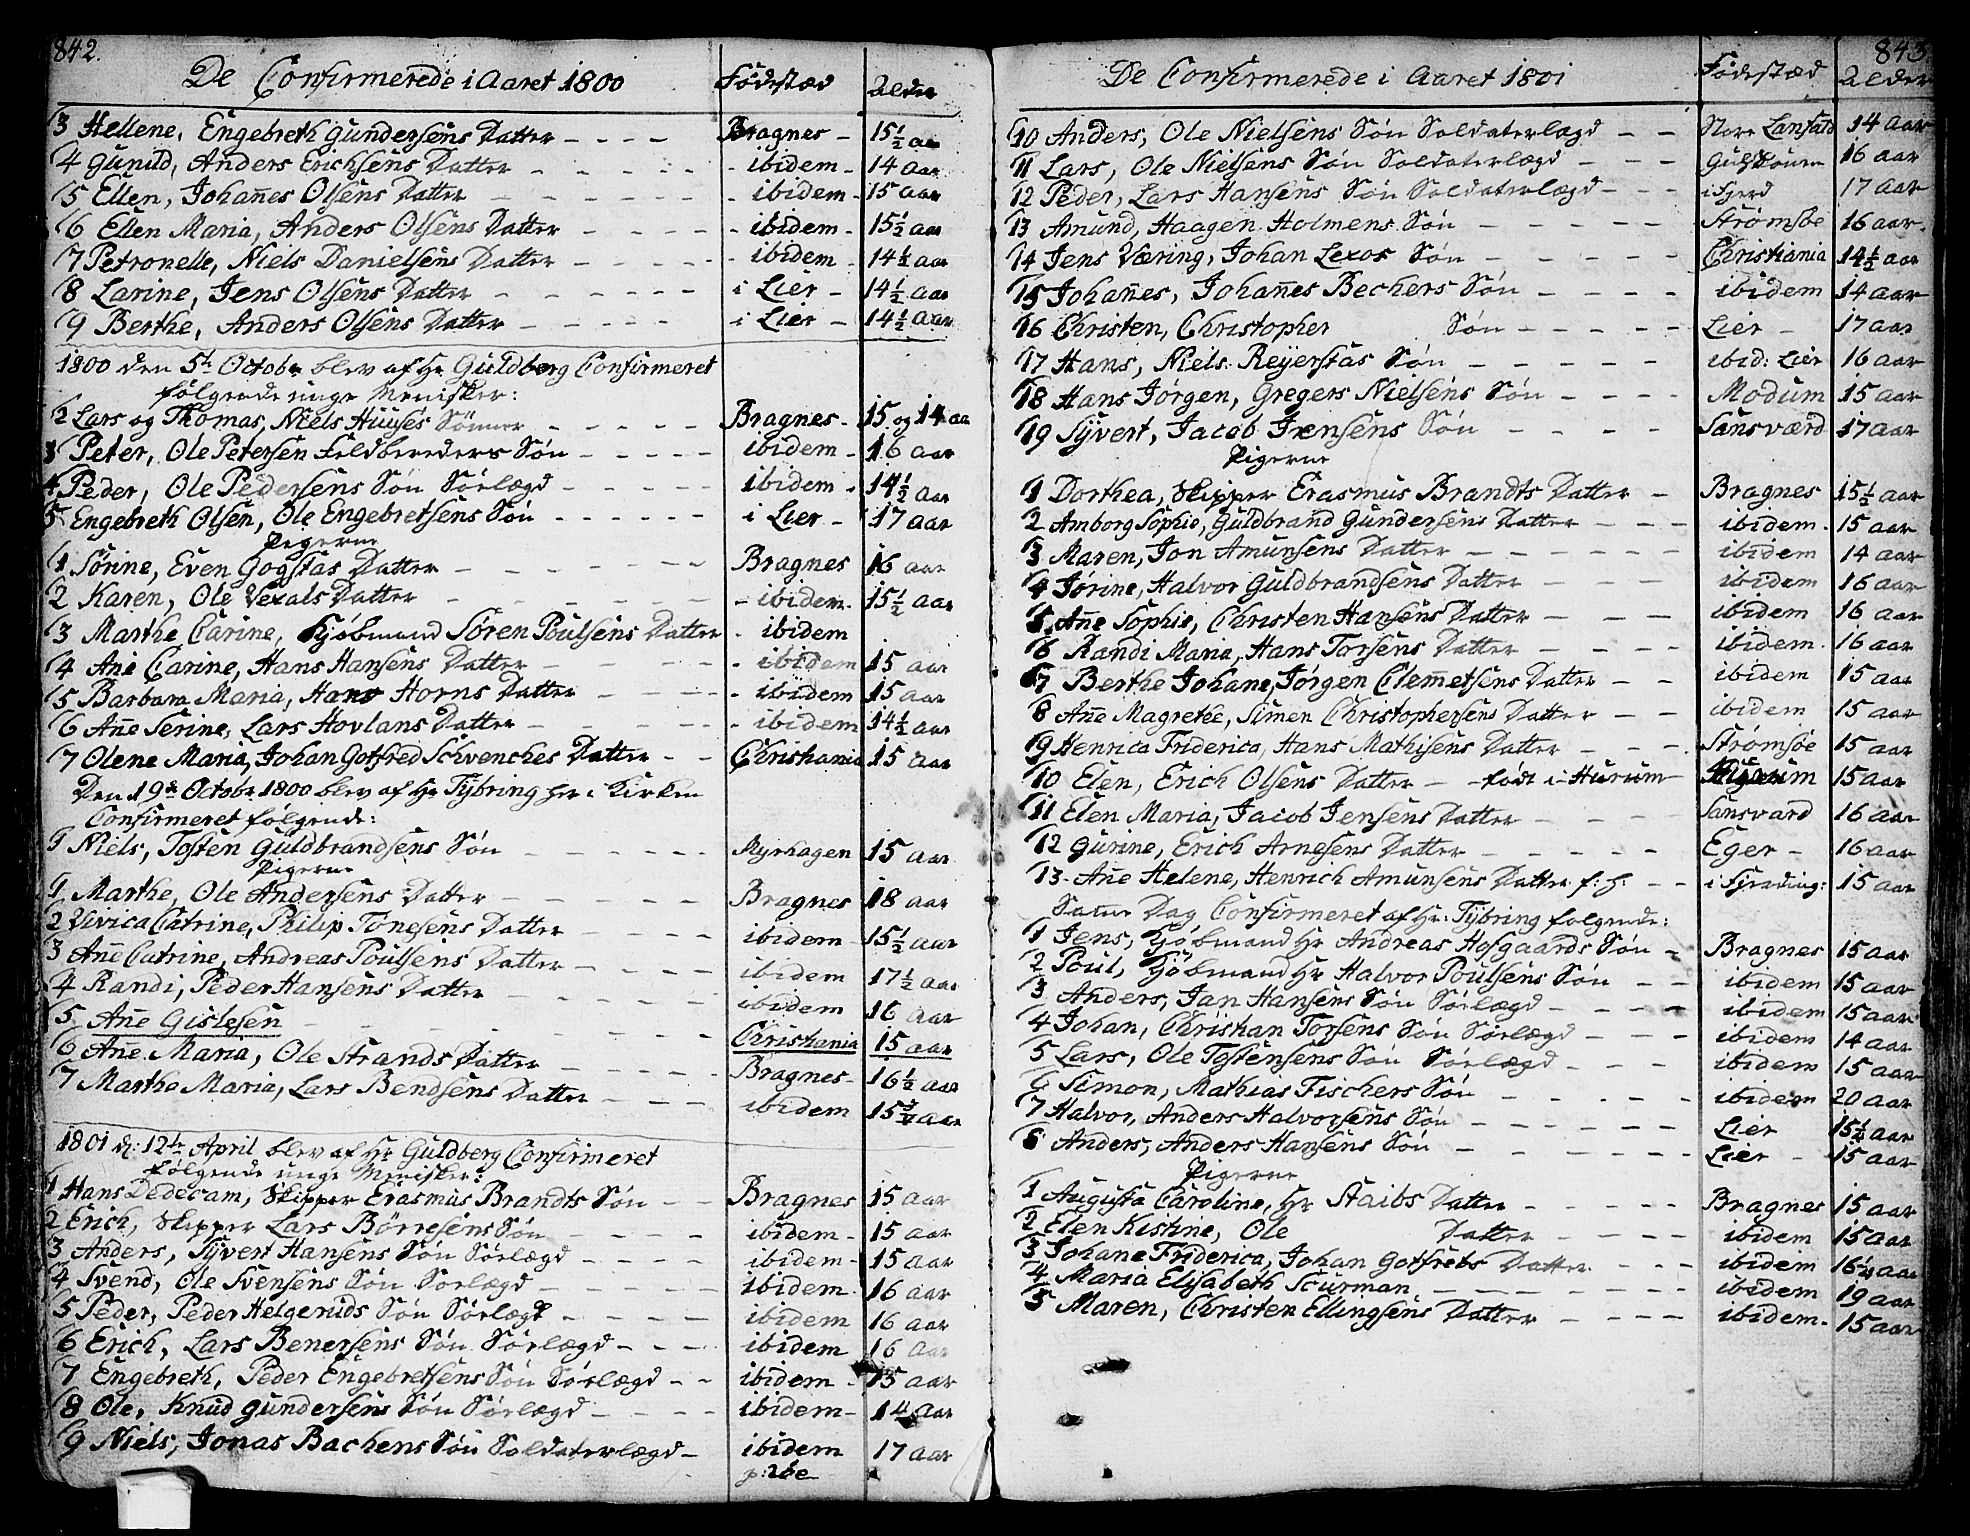 842.
De Confirmerede i Aaret 1800 Fødestæd Alder
3 Hellene, Engebreth Gundersens Datter - - - - Bragnes - 15 1/2 aar
4 Gunild, Anders Erichsens Datter - - - - - ibidem - 14 aar
5 Ellen, Johan̄es Olsens Datter - - - - ibidem - 15 aar
6 Ellen Maria, Anders Olsens Datter - - - - ibidem - 15 1/2 aar
7 Petronelle, Niels Danielsens Datter - - - - ibidem - 14 1/2 aar
8 Larine, Jens Olsens Datter - - - - i Lier - 14 1/2 aar
9 Berthe, Anders Olsens Datter - - - - i Lier - 14 1/2 aar
1800 den 5te Octobr blev af Hr Guldberg Confirmeret
følgende unge Menisker:
2 Lars og Thomas, Niels Huuses Sønner - - - - Bragnes - 15 og 14 aa
3 Peter, Ole Petersen Feldbereders Søn - - - - ibidem - 16 aar
4 Peder, Ole Pedersens Søn Sørlægd - - - - ibidem - 14 1/2 aar
5 Engebreth Olsen, Ole Engebretsens Søn - - - - i Lier - 17 aar
Pigerne
1 Sørine, Even Gogstas Datter - - - - Bragnes 16 aar
2 Karen, Ole Vexals Datter - - - - ibidem. 15 1/2 aar
3 Marthe Carine, Kjøbmand Søren Poulsens Datter - ibidem
4 Ane Carine, Hans Hansens Datter - - - - ibidem 15 aar
5 Barbara Maria, Hans Horns Datter - - - - ibidem 15 aar
6 An̄e Serine, Lars Hovlans Datter - - - - ibidem 14 1/2 aar
7 Olene Maria, Johan Gotfred Schvenches Datter - - Christiania 15 aar
Den 19de Octobr 1800 blev af Hr Tybring her i Kirken
Confirmeret følgende:
1 Niels, Tosten Guldbrandsens Søn - - - - Myrhagen 15 aar
Pigerne
1 Marthe, Ole Andersens Datter - - - - Bragnes 18 aar
2 Vivica Catrine, Philip Tønesens Datter - - - - ibidem - 15 1/2 aar
3 An̄e Catrine, Andreas Poulsens Datter - - - - ibidem 17 1/2 aar
4 Randi, Peder Hansens Datter - - - - ibidem 16 aar
5 An̄e Gislesen - - - - Christiania 15 aar
6 An̄e Maria, Ole Strands Datter - - - - Bragnes - 16 1/2 aar
7 Marthe Maria, Lars Bendsens Datter - - - ibidem 15 3/4 aar
1801 d: 12te April blev af Hr Guldberg Confirmeret
følgende unge Menisker:
1 Hans Dedecam, Skipper Erasmus Brandts Søn - - Bragnes 15 aar
2 Erich, Skipper Lars Børresens Søn - - - - ibidem - 15 aar
3 Anders, Syvert Hansens Søn Sørlægd - - - - ibidem - 15 aar
4 Svend, Ole Svensens Søn Sørlægd - - - - ibidem 16 aar
5 Peder, Peder Helgeruds Søn Sørlægd - - - - ibidem 16 aar
6 Erich, Lars Benersens Søn Sørlægd - - - ibidem 16 aar
7 Engebreth, Peder Engebretsens Søn Sørlægd - - ibidem - 15 aar
8 Ole, Knud Gundersens Søn Sørlægd - - - - ibidem - 14 aar
9 Niels, Jonas Bachens Søn Soldaterlægd - ibidem 17 aar
843.
De Confirmerede i Aaret 1801 Fødestæd Alder
10 Anders, Ole Nielsens Søn Soldaterlægd - - Store Lansfald 14 aar
11 Lars, Ole Nielsens Søn Soldaterlægd - - - Gulskouen 16 aar
12 Peder, Lars Hansens Søn Soldaterlægd - - - i Fjerd 17 aar
13 Amund, Haagen Holmens Søn - - - - - Strømsøe 16 aar.
14 Jens Væring, Johan Lexos Søn - - - - - Christiania 14 1/2 aar
15 Johan̄es, Johan̄es Bechers Søn - - - - ibidem 14 aar
16 Christen, Christopher Søn - - - - - Lier - 17 aar
17 Hans, Niels Reyerstas Søn - - - - - ibid: Lier 16 aar
18 Hans Jørgen, Gregers Nielsens Søn - - - - Modum 15 aar
19 Syvert, Jacob Jensens Søn - - - - Sansværd 17 aar
Pigerne
1 Dorthea, Skipper Erasmus Brandts Datter - Bragnes 15 1/2 aar
2 Amborg Sophie, Guldbrand Gundersens Datter - - - ibidem. 15 aar
3 Maren, Jon Amunsens Datter - - - - - ibidem 14 aar
4 Jørine, Halvor Guldbrandsens Datter - - - - ibidem 16 aar
5 An̄e Sophie, Christen Hansens Datter - - - - ibidem 16 aar
6 Randi Maria, Hans Torsens Datter - - - - ibidem. 16 aar
7 Berthe Johane, Jørgen Clemetsens Datter - - ibidem 15 aar
8 An̄e Magrethe, Simen Christophersens Datter - - ibidem 15 aar
9 Henrica Friderica, Hans Mathisens Datter - - - - Strømsøe 15 aar
10 Elen, Erich Olsens Datter - - født i Hurum - 15 aar
11 Elen Maria, Jacob Jensens Datter - - - - Sansvard 16 aar
12 Gurine, Erich Arnesens Datter - - - - - Eger - 16 aar
13. An̄e Helene, Henrich Amunsens Datter f: h. - - i Fjrading: 15 aar
Sam̄e Dag Confirmeret af Hr: Tybring følgende:
1 Jens, Kjøbmand Hr Andreas Hofgaards Søn - Bragnes 15 aar
2 Poul, Kjøbmand Hr Halvor Poulsens Søn - - ibidem 15 aar
3 Anders, Jan Hansens Søn Sørlægd - - - - ibidem 15 aar
4 Johan, Christian Torsens Søn Sørlægd - - - ibidem 14 aar
5 Lars, Ole Tostensens Søn Sørlægd - - - - ibidem 15 aar
6 Simon, Mathias Fischers Søn - - - - - ibidem 20 aar
7 Halvor, Anders Halvorsens Søn - - - - - Lier 15 1/4 aar
8 Anders, Anders Hansens Søn - - - - - Lier - 15 aar
Pigerne
1 Augusta Caroline, Hr Staibs Datter - - - - - Bragnes 15 aar
2 Elen Kistine, Ole Datter - - - - ibidem 15 aar
3 Johane Friderica, Johan Gotfrebs Datter - - - - ibidem 16 1/4 aar
4 Maria Elisabeth Scurman - - - - - ibidem 19 aar
5 Maren, Christen Ellingsens Datter - - - - ibidem. 15 aar